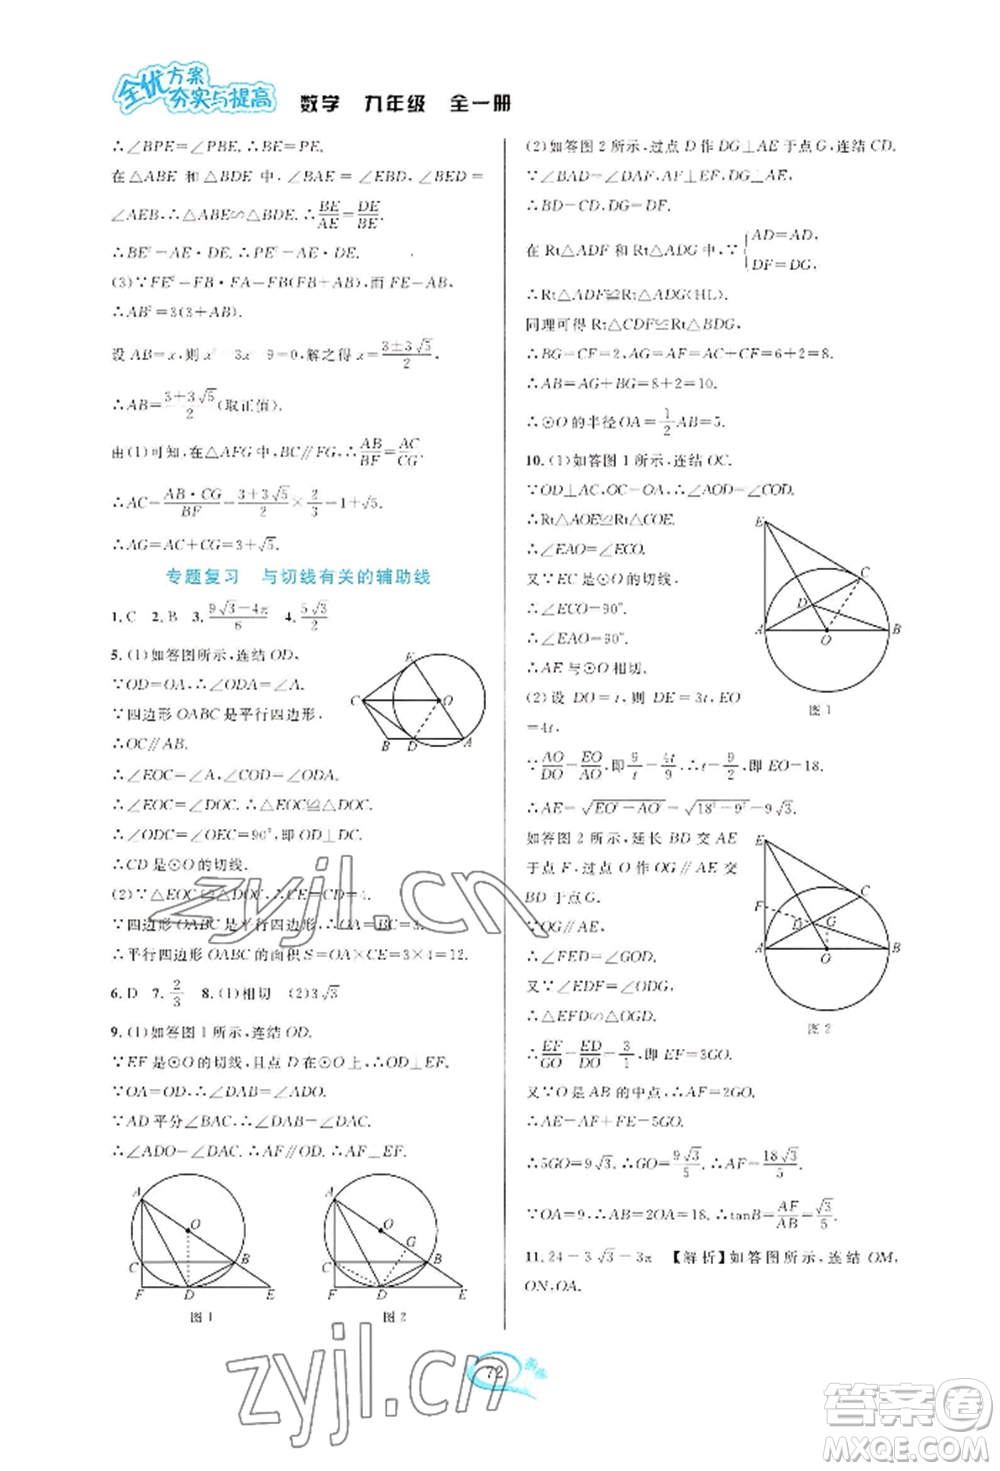 全优方案
夯实与提高 数学 九年级 全一册
∴∠BPE=∠PBE. ∴BE=PE.
在△ABE 和△BDE 中,∠BAE=∠EBD,∠BED=
∠AEB,∴△ABE∽△BDE. ∴BE/AE=DE/BE.
∴BE²=AE·DE. ∴PE²=AE·DE.
(3)∵FE²=FB·FA=FB(FB+AB),而FE=AB,FB=3,
∴AB²=3(3+AB).
设AB=x,则x²-3x-9=0,解之得x=(3±3√5)/2.
∴AB=(3+3√5)/2(取正值).
由(1)可知,在△AFG中,BC∥FG,∴AB/BF=AC/CG.
∴AC=AB·CG/BF=(3+3√5)/2×2/3=1+√5.
∴AG=AC+CG=3+√5.
专题复习 与切线有关的辅助线
1.C 2.B 3.(9√3-4π)/6 4.5√3/2
5.(1)如答图所示,连结OD,
∵OD=OA,∴∠ODA=∠A.
∵四边形OABC是平行四边形,
∴OC∥AB.
∴∠EOC=∠A,∠COD=∠ODA.
∴∠EOC=∠DOC. ∴△EOC≌△DOC.
∴∠ODC=∠OEC=90°,即OD⊥DC.
∴CD是⊙O的切线.
(2)∵△EOC≌△DOC,∴CE=CD=4.
∵四边形OABC是平行四边形,∴OA=BC=3.
∴平行四边形OABC的面积S=OA×CE=3×4=12.
6.D 7.2/3 8.(1)相切 (2)3√3
9.(1)如答图1所示,连结OD.
∵EF是⊙O的切线,且点D在⊙O上,∴OD⊥EF.
∵OA=OD,∴∠DAO=∠ADO.
∵AD平分∠BAC,∴∠DAC=∠DAO.
∴∠ADO=∠DAC. ∴AF∥OD. ∴AF⊥EF.
图1 图2
(2)如答图2所示,过点D作DG⊥AE于点G,连结CD.
∵∠BAD=∠DAF,AF⊥EF,DG⊥AE,
∴BD=CD,DG=DF.
在Rt△ADF和Rt△ADG中,∵{AD=AD, DF=DG,
∴Rt△ADF≌Rt△ADG(HL).
同理可得Rt△CDF≌Rt△BDG,
∴BG=CF=2,AG=AF=AC+CF=6+2=8.
∴AB=AG+BG=8+2=10.
∴⊙O的半径OA=1/2AB=5.
10.(1)如答图1所示,连结OC.
∵OD⊥AC,OC=OA,∴∠AOD=∠COD.
∴Rt△AOE≌Rt△COE.
∴∠EAO=∠ECO.
又∵EC是⊙O的切线,
∴∠ECO=90°.
∴∠EAO=90°.
∴AE与⊙O相切.
(2)设DO=t,则DE=3t,EO
=4t.
∵AO/DO=EO/AO,即9/t=4t/9,∴t=9/2,即EO=18.
∴AE=√(EO²-AO²)=√(18²-9²)=9√3.
如答图2所示,延长BD交AE
于点F,过点O作OG∥AE交
BD于点G.
∵OG∥AE,
∴∠FED=∠GOD.
又∵∠EDF=∠ODG,
∴△EFD∽△OGD.
∴EF/GO=ED/DO=3/1,即EF=3GO.
又∵O是AB的中点,∴AF=2GO.
∴AE=AF+FE=5GO.
∴5GO=9√3,∴GO=9√3/5,∴AF=18√3/5.
∵OA=9,∴AB=2OA=18,∴tanB=AF/AB=√3/5.
11.24-3√3-3π 【解析】如答图所示,连结OM,
ON,OA.
图1
图2
72
zyjl.cn
zyjl.cn
答案圈
MXQE.COM